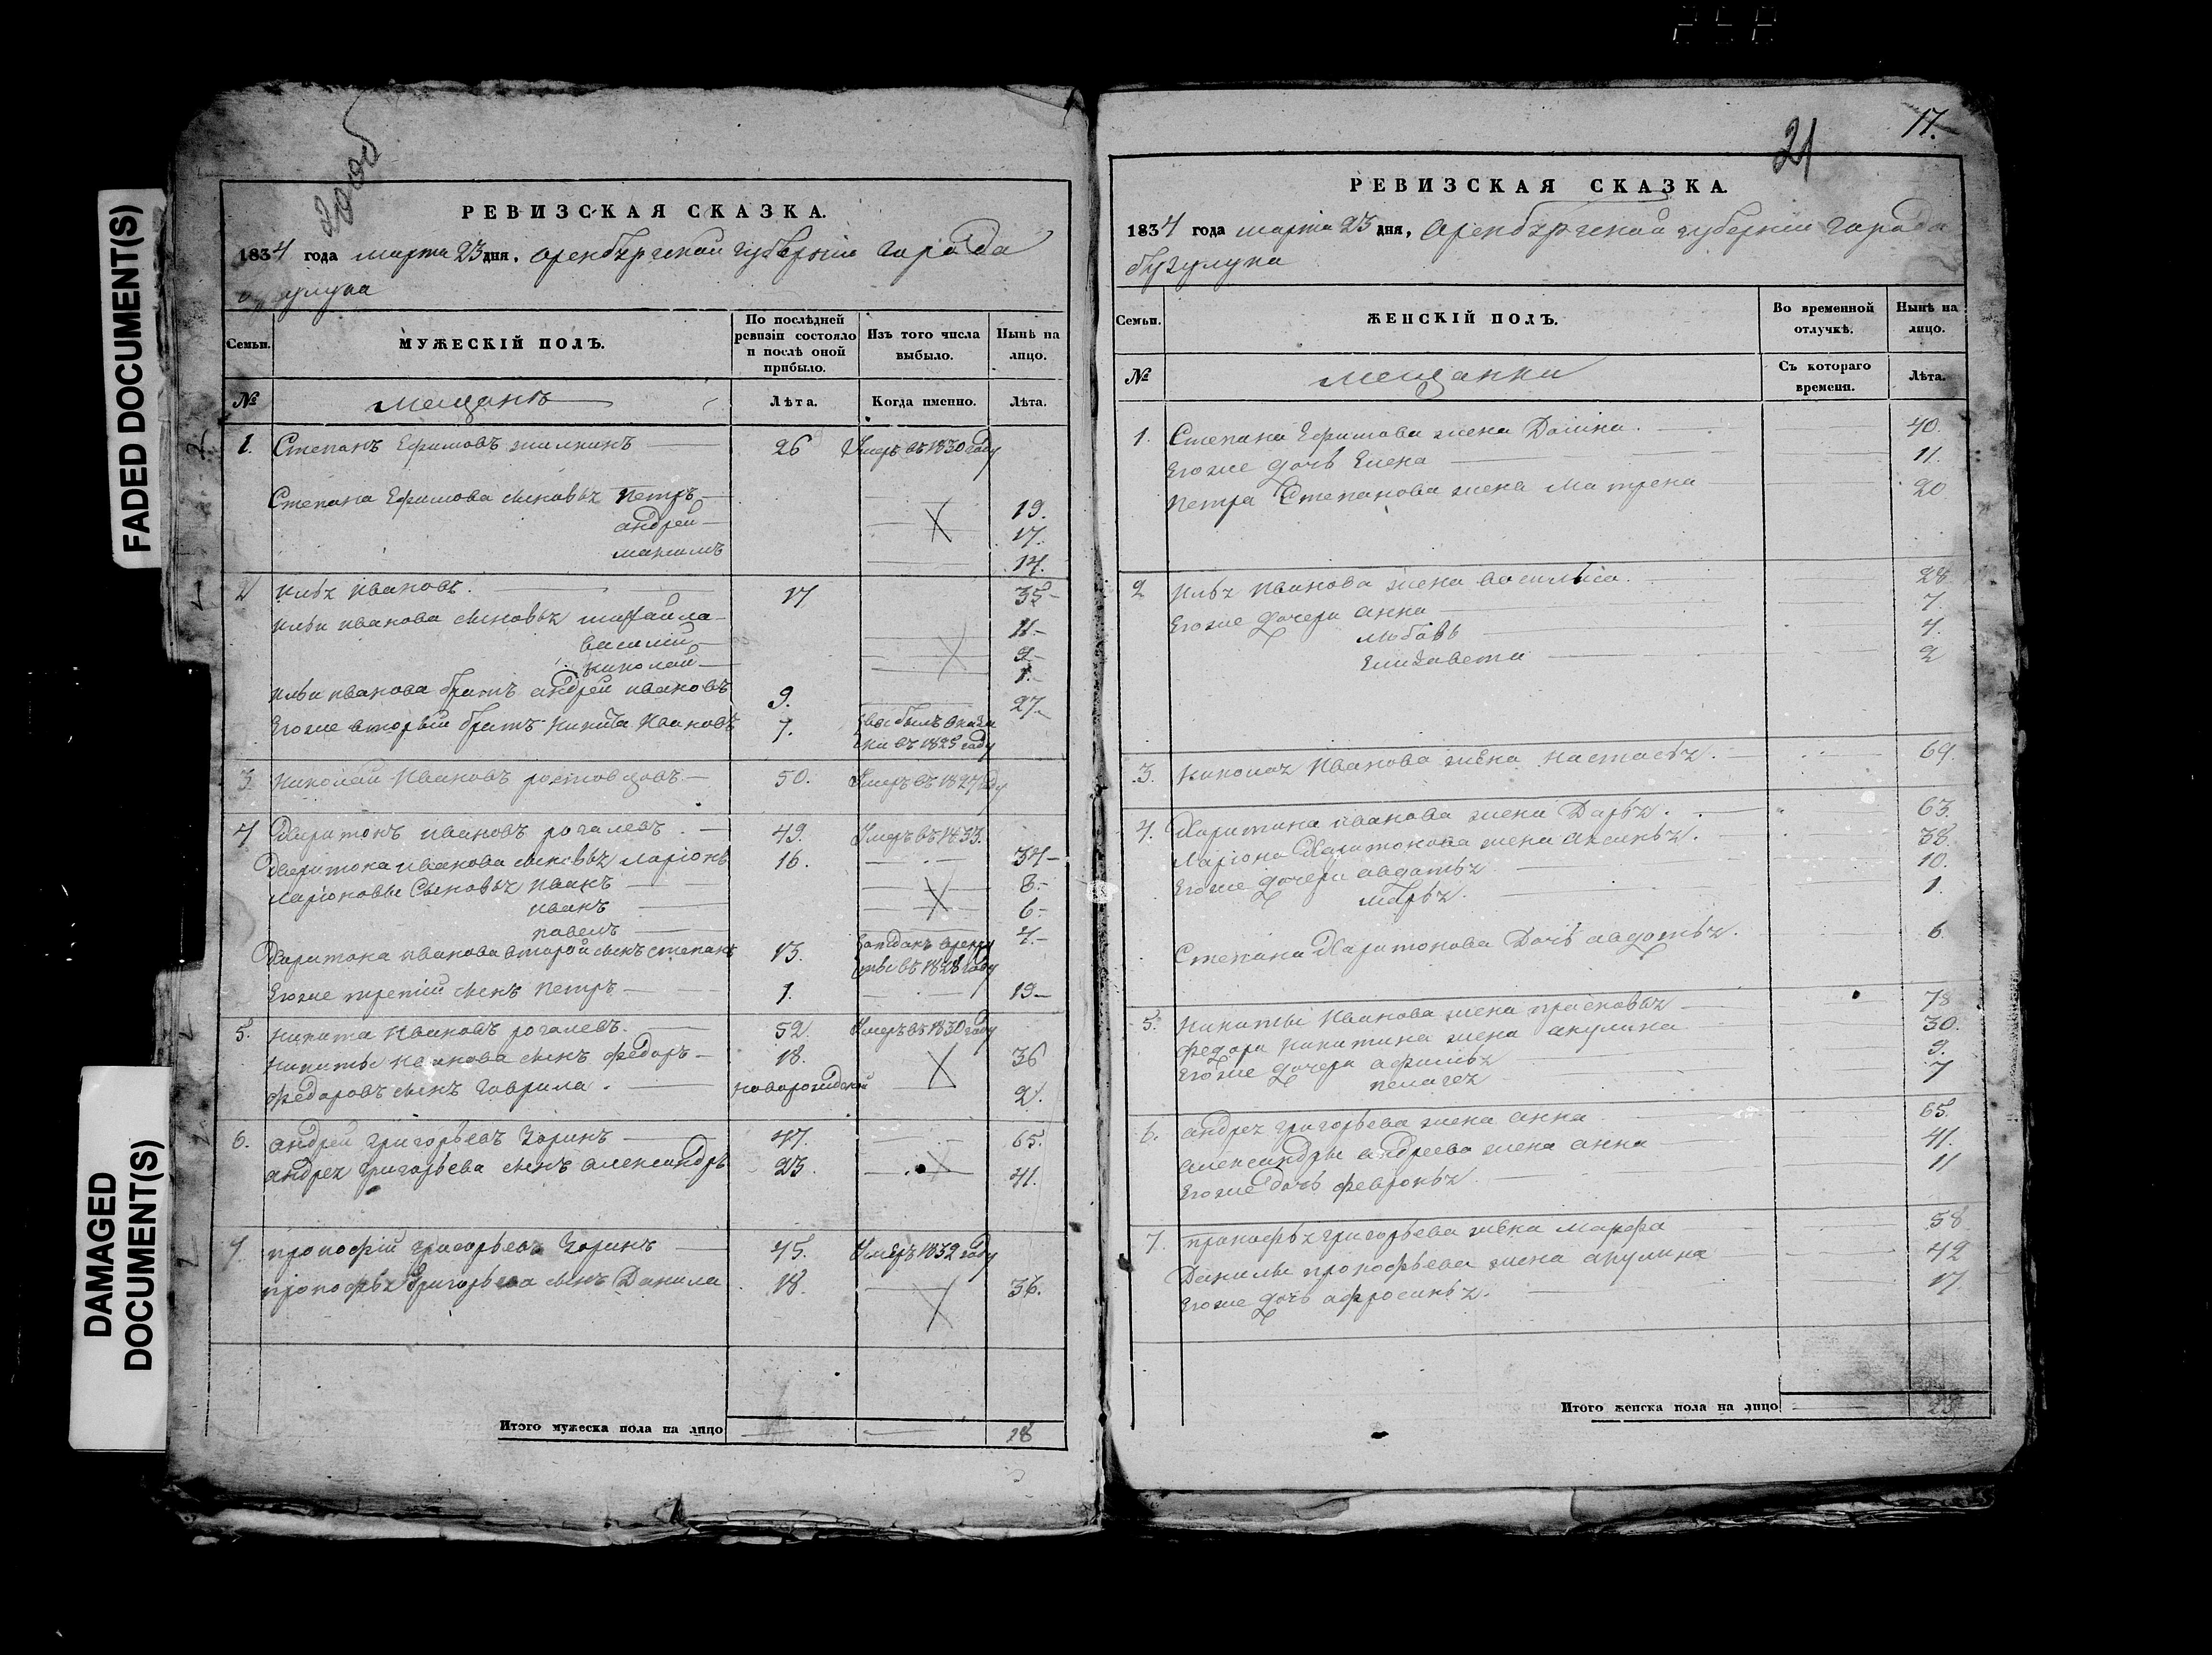 FADED DOCUMENT(S)
DAMAGED
DOCUMENT(S)
РЕВИЗСКАЯ СКАЗКА.
1834 года марта 23 дня, оренбургской губернiи города
Семьи. МУЖЕСКIЙ ПОЛЪ. По послѣдней ревизiи состояло и послѣ оной прибыло. Изъ того числа выбыло. Нынѣ на лицо.
№ мещанъ Лѣта. Когда именно. Лѣта.
1. Степанъ Ефимовъ жилкинъ 26 Умеръ въ 1830 году
Степана Ефимова сыновья Петръ 19.
андрей 17.
максимъ 14.
2 илья ивановъ. 17 35
ильи иванова сыновья михайла 11
василий 9
николай 1
ильи иванова братъ андрей ивановъ 9. 27
Егоже вторый братъ никита Ивановъ 7. въ 1825 году
3. николай Ивановъ ростовцовъ 50. Умеръ въ 1827 году
4 Харитонъ ивановъ рогалевъ. 49. Умеръ въ 1833.
Харитона иванова сыновья ларiонъ 16. 34
ларiоновы Сыновья иванъ 8.
иванъ 6.
павелъ 4.
Харитона иванова второй сынъ степанъ 13.
въ 1828 году
Егоже третiй сынъ Петръ 1. 19
5. никита Ивановъ рогалевъ. 52. Умеръ въ 1830 году
никиты иванова сынъ федоръ 18. 36
федоровъ сынъ гаврила. новорожденой 2.
6. андрей григорьевъ Зоринъ 47. 65.
андрея григорьева сынъ александръ 23. 41.
7. прокофiй григорьевъ Зоринъ 45. Умеръ 1832 году
прокофья григорьева сынъ Данила 18. 36.
Итого мужеска пола на лицо 18
17.
21
РЕВИЗСКАЯ СКАЗКА.
1834 года марта 23 дня, Оренбургской губернiи города
бугулука
Семьи. ЖЕНСКIЙ ПОЛЪ. Во временной отлучкѣ. Нынѣ на лицо.
№ мещанки Съ котораго времени. Лѣта.
1. Степана Ефимова жена Домна. 40.
Егоже дочь Елена 11.
Петра Степанова жена Матрена 20
2 ильи иванова жена василиса. 28
Егоже дочери анна 7.
любовь 4.
Елизавета 2
3. николая Иванова жена настасья. 69
4. Харитона иванова жена Дарья. 63.
Ларiона Харитонова жена аксинья. 38.
Егоже дочери авдотья 10.
марья. 1.
Степана Харитонова Дочь авдотья. 6
5. никиты Иванова жена прасковья 78
федора никитина жена акулина 30.
Егоже дочери афимья 9.
пелагея 7
6. андрея григорьева жена анна 65.
александры андреева жена анна 41.
Егоже дочь февронья 11
7. прокофья григорьева жена марфа 58
Данилы прокофьева жена акулина 42
Егоже дочь афросинья. 17.
Итого женска пола на лицо